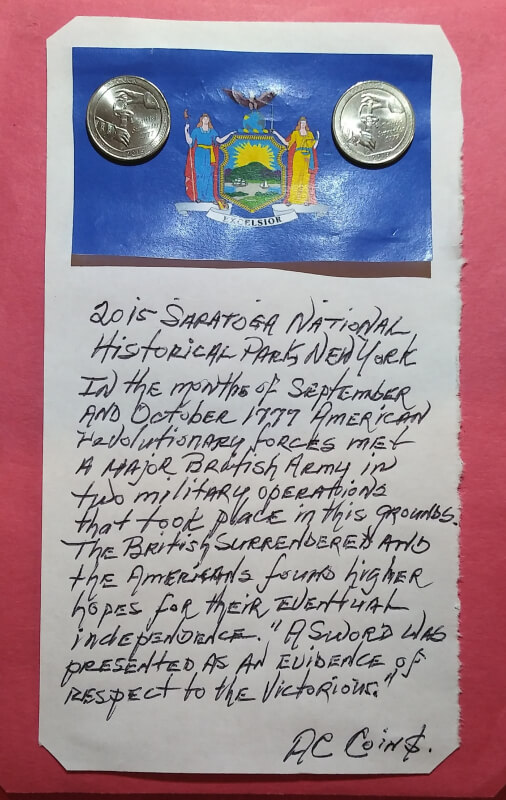 EXCELSIOR
2015 SARATOGA NATIONAL
HISTORICAL PARK, NEW YORK
IN the months of SEPTEMBER
AND OCTOBER 1777 AMERICAN
revolutionary forces met
A MAJOR BRITISH ARMY in
two military operations
that took place in this GROUNDS.
The BRITISH SURRENDERED AND
the AMERICANS found higher
hopes for their EVENTUAL
independence. "A SWORD WAS
PRESENTED AS AN EVIDENCE of
RESPECT to the Victorious."
AC COIN$.